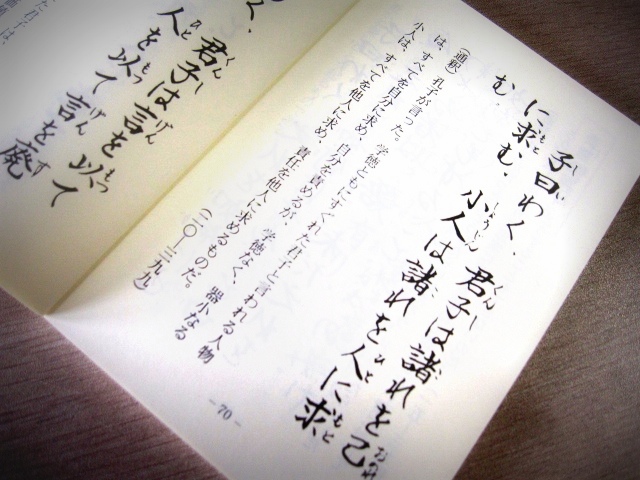 子曰わく、君子は諸れを己
に求む。小人は諸れを人に求
む。
(通釈) 孔子が言った。学徳ともにすぐれた君子と言われる人物
は、すべてを自分に求め、自分を責めるが、学徳なく、器小なる
小人は、すべてを他人に求め、責任を他人に求めるものだ。
(二〇―三九九)
-70-
く、君子は言を以て
人を以て言を廃
た君子は、